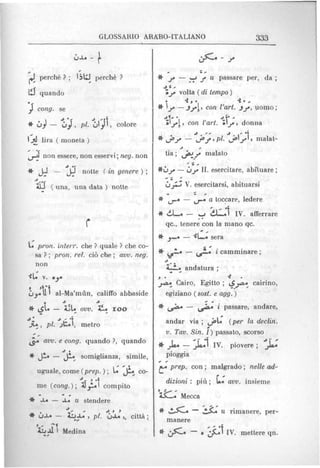 GLOSSARIO ARABO-ITALIANO 333
لِمَ perché ? ; لِمَاذَا perché ?
لَمَّا quando
لَوْ cong. se
* لون — لَوْن , pl. أَلْوَان , colore
لِيرَا lira ( moneta )
لَيْسَ non essere, non esservi; neg. non
* ليل — لَيْل notte ( in genere ) ;
لَيْلَة ( una, una data ) notte
م
مَا pron. interr. che ? quale ? che co-
sa ? ; pron. rel. ciò che ; avv. neg.
non
مَاء v. موه
المَأْمُون al-Ma'mūn, califfo abbaside
* مأي — مِائَة avv. مِئَة 100
مِتْر , pl. أَمْتَار , metro
مَتَى avv. e cong. quando ?, quando
* مثل — مِثْل somiglianza, simile,
uguale, come ( prep. ) ; مِثْلَمَا co-
me (cong.) ;
compito
* مد — مَدَّ u stendere
* مدن — مَدِينَة , pl. مُدُن , città ;
المَدِينَة Medina
مرّ — * مر
* مر — مَرَّ بـ u passare per, da ;
مَرَّة volta ( di tempo )
con l'art. , uomo ;
con l'art. , donna
* مرض — مَرَض , pl. أَمْرَاض , malat-
tia ; مَرِيض malato
* مرن — مَرَّنَ II. esercitare, abituare ;
V. esercitarsi, abituarsi
* مس — مَسَّ a toccare, ledere
* مسك — أَمْسَكَ بـ IV. afferrare
qc., tenere con la mano qc.
* مسو — مَسَاء sera
* مشي — مَشَى i camminare ;
andatura ;
مِصْر Cairo, Egitto ; مِصْرِيّ cairino,
egiziano ( sost. e agg. )
* مضي — مَضَى i passare, andare,
andar via ; مَاضٍ (per la declin.
v. Tav. Sin. I) passato, scorso
* مطر — أَمْطَرَ IV. piovere ; مَطَر
pioggia
مَعَ prep. con ; malgrado ; nelle ad-
dizioni : più ; مَعًا avv. insieme
مَكَّة Mecca
* مكث — مَكَثَ u rimanere, per-
manere
* مكن — أَمْكَنَ ه IV. mettere qn.